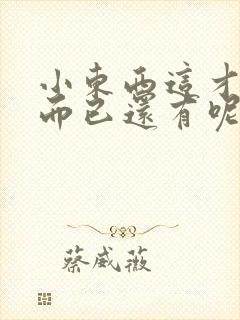 小東西這才
而已還有呢
蔡威薇